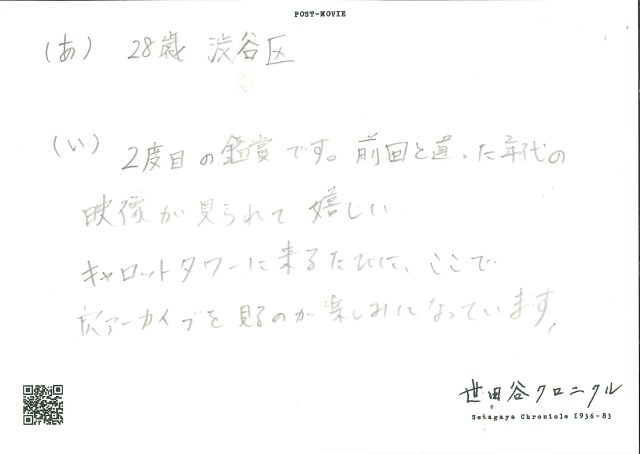 POST-MOVIE
(あ) 28歳 渋谷区
(い) 2度目の鑑賞です。前回と違った年代の
映像が見られて嬉しい
キャロットタワーに来るたびに、ここで
穴アーカイブを見るのが楽しみになっています。
世田谷クロニクル
Setagaya Chronicle 1936-83